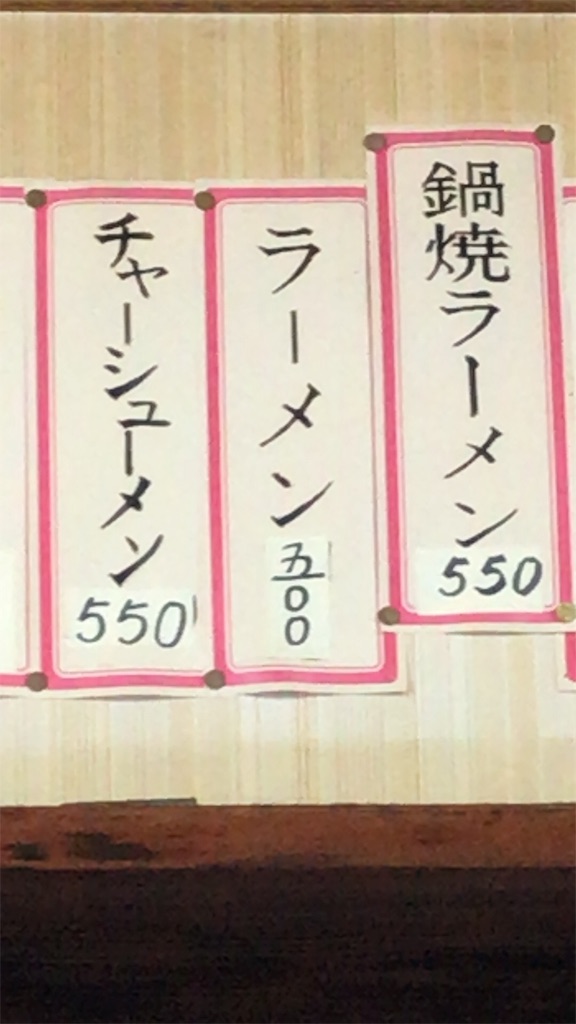 鍋焼ラーメン
550
ラーメン
五00
チャーシューメン
550